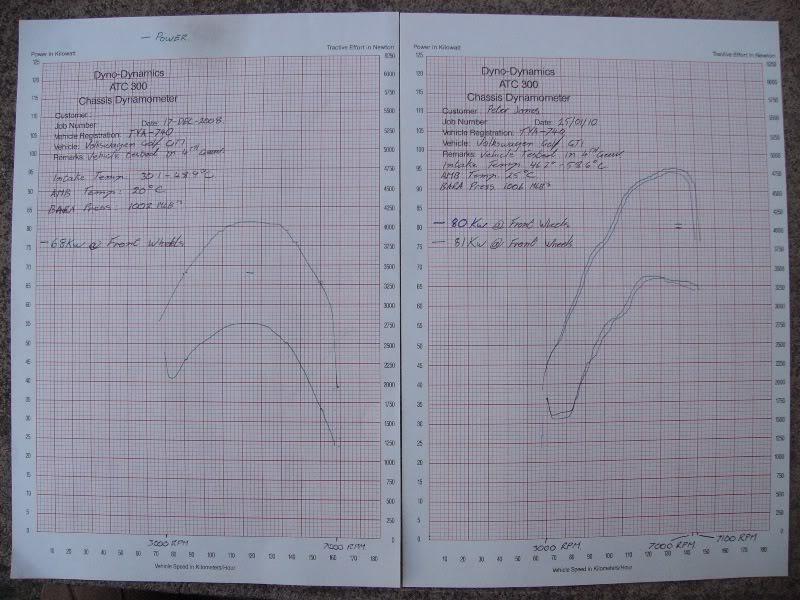 — POWER
Power in Kilowatt
Tractive Effort in Newton
Dyno-Dynamics
ATC 300
Chassis Dynamometer
Customer :
Job Number:
Date: 17-DEC-2008.
Vehicle Registration: TYA-740
Vehicle: Volkswagen Golf GTI
Remarks: Vehicle Tested in 4th Gear.
Intake Temp. 30.1 - 48.9°C
AMB Temp: 20°C
BARA Press: 1002
— 68Kw @ Front Wheels
125
120
115
110
105
100
95
90
85
80
75
70
65
60
55
50
45
40
35
30
25
20
15
10
5
0
6250
6000
5750
5500
5250
5000
4750
4500
4250
4000
3750
3500
3250
3000
2750
2500
2250
2000
1750
1500
1250
1000
750
500
250
0
3000 RPM
7000 RPM
10 20 30 40 50 60 70 80 90 100 110 120 130 140 150 160 170 180
Vehicle Speed in Kilometers/Hour
Power in Kilowatt
Tractive Effort in Newton
Dyno-Dynamics
ATC 300
Chassis Dynamometer
Customer : Peter James
Job Number:
Date: 25/01/10
Vehicle Registration: TYA-740
Vehicle: Volkswagen Golf GTI
Remarks: Vehicle Tested in 4th Gear
Intake Temp: 46.2° - 58.6°C
AMB Temp: 25°C
BARA Press: 1006 MLB
— 80 Kw @ Front Wheels
— 81 Kw @ Front Wheels
125
120
115
110
105
100
95
90
85
80
75
70
65
60
55
50
45
40
35
30
25
20
15
10
5
0
6250
6000
5750
5500
5250
5000
4750
4500
4250
4000
3750
3500
3250
3000
2750
2500
2250
2000
1750
1500
1250
1000
750
500
250
0
3000 RPM
7000 RPM
7100 RPM
10 20 30 40 50 60 70 80 90 100 110 120 130 140 150 160 170 180
Vehicle Speed in Kilometers/Hour